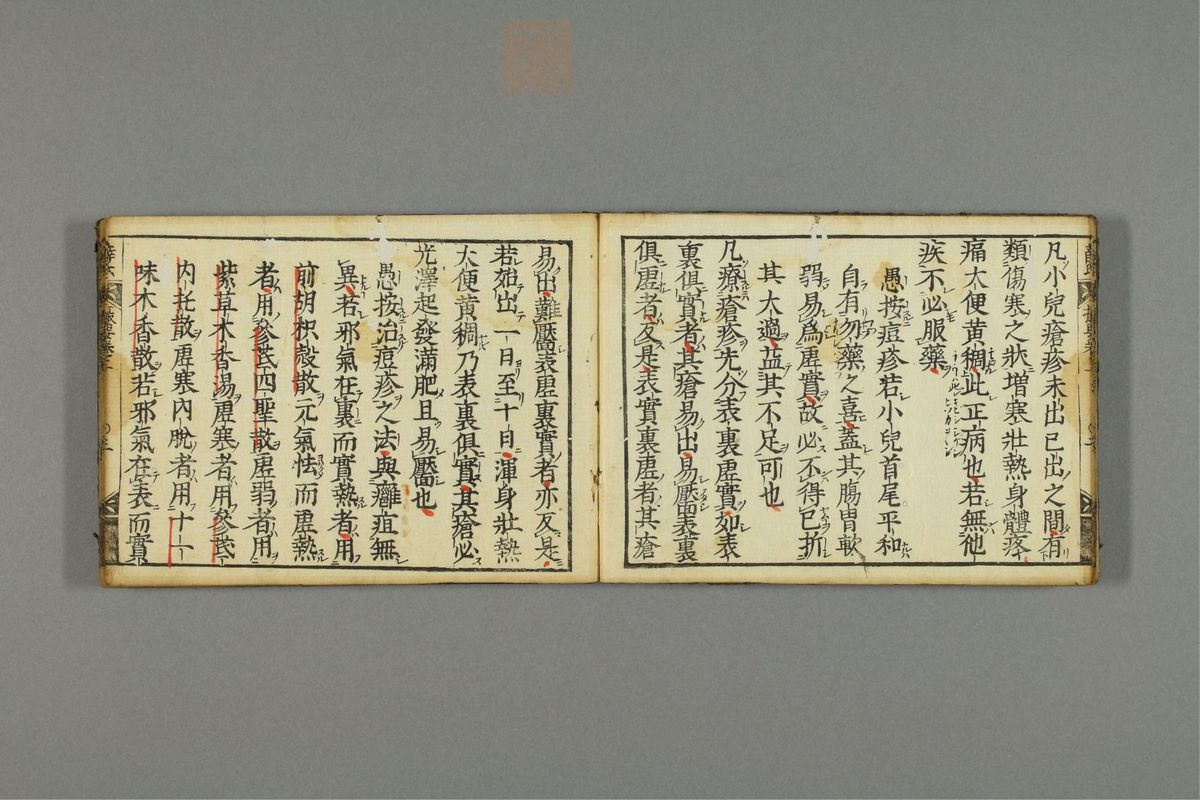 凡小兒瘡疹未出已出之間有
類傷寒之狀增寒壯熱身體疼
痛大便黃稠此正病也若無他
疾不必服藥
愚按痘疹若小兒首尾平和
自有勿藥之喜蓋其腸胃軟
弱易爲虛實故必不得已折
其太過益其不足可也
凡療瘡疹先分表裏虛實如表
裏俱實者其瘡易出易壓表裏
俱虛者反是表實裏虛者其瘡
易出難壓表虛裏實者亦反是
若始出一日至十日渾身壯熱
大便黃稠乃表裏俱實其瘡必
光澤起發滿肥且易壓也
愚按治痘疹之法與癰疽無
異若邪氣在裏而實熱者用
前胡枳殼散元氣怯而虛熱
者用參芪四聖散虛弱者用
紫草木香湯虛寒者用參芪
內托散虛寒內脫者用十一
味木香散若邪氣在表而實